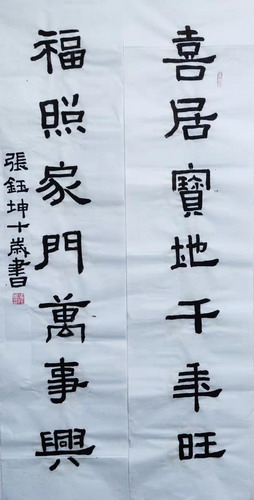 喜居寶地千年旺
福照家門萬事興
張鈺坤十歲書